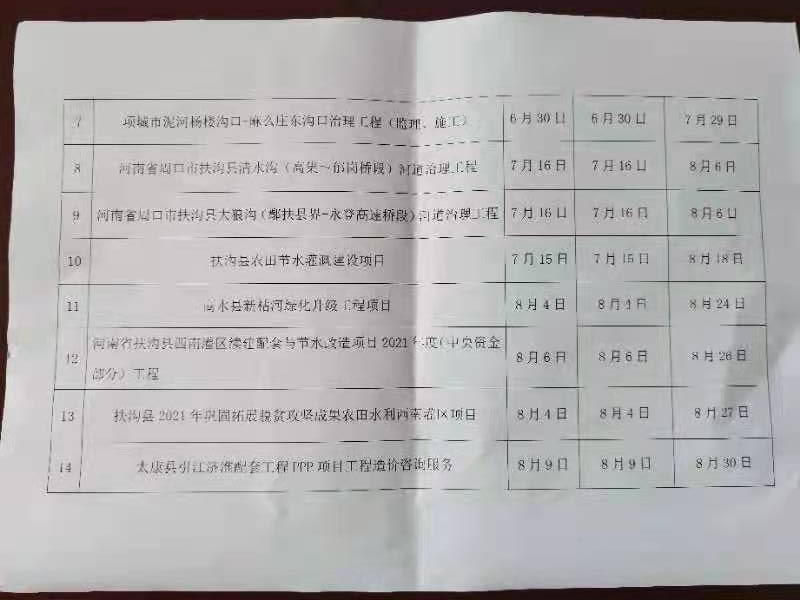 7 项城市泥河杨楼沟口-麻么庄东沟口治理工程（监理、施工） 6月30日 6月30日 7月29日
8 河南省周口市扶沟县清水沟（高集～郜岗桥段）河道治理工程 7月16日 7月16日 8月6日
9 河南省周口市扶沟县大狼沟（鄢扶县界-永登高速桥段）河道治理工程 7月16日 7月16日 8月6日
10 扶沟县农田节水灌溉建设项目 7月15日 7月15日 8月18日
11 商水县新枯河绿化升级工程项目 8月4日 8月4日 8月24日
12 河南省扶沟县西南灌区续建配套与节水改造项目2021年度（中央资金 8月6日 8月6日 8月26日
部分）工程
13 扶沟县2021年巩固拓展脱贫攻坚成果农田水利西南灌区项目 8月4日 8月4日 8月27日
14 太康县引江济淮配套工程PPP项目工程造价咨询服务 8月9日 8月9日 8月30日